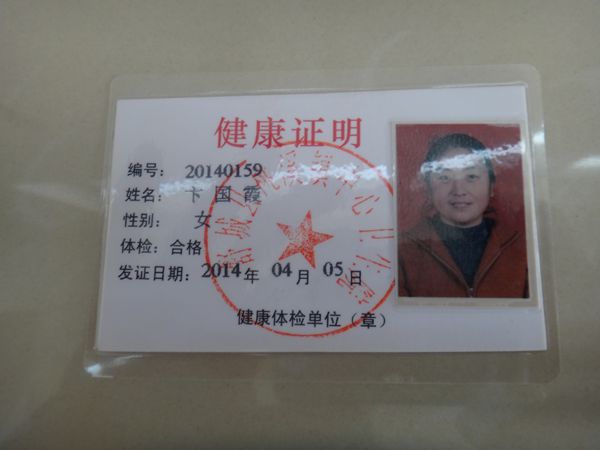 健康证明
编号： 20140159
姓名： 卞国霞
性别： 女
体检：合格
发证日期：2014年 04月 05日
健康体检单位（章）